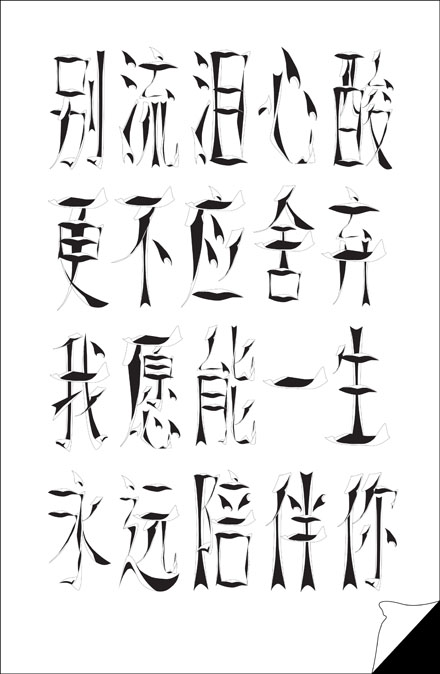 别流泪心酸
更不应舍弃
我愿能一生
永远陪伴你